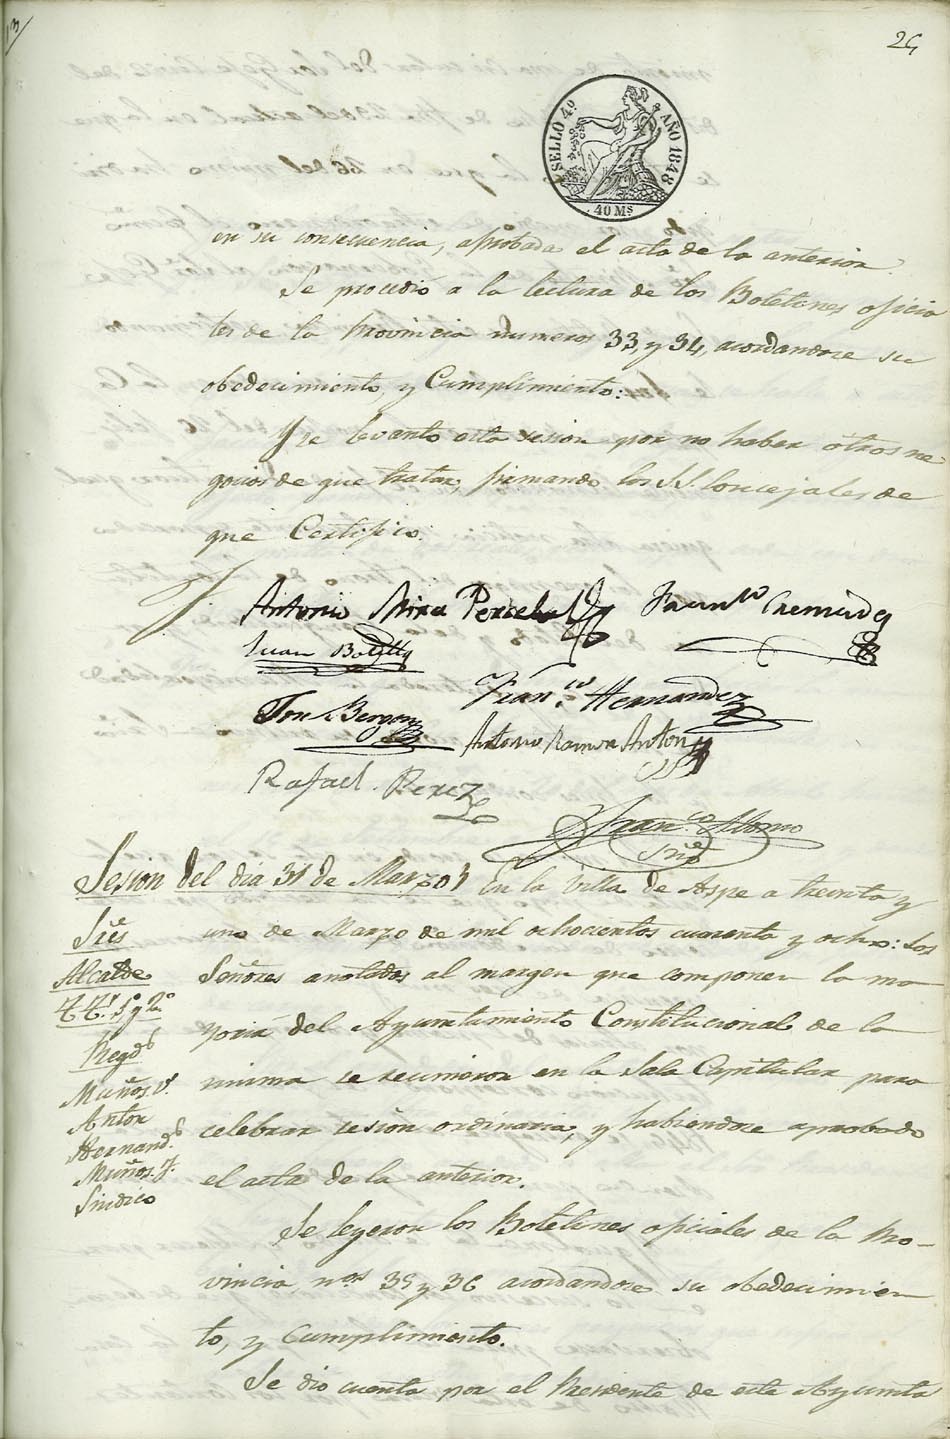 SELLO 4º AÑO 1848
40 Ms
en su consecuencia, aprobada el acta de la anterior.
Se procedió a la lectura de los Boletines oficia
les de la Provincia numeros 33, y 34, acordandose su
obedecimiento, y Cumplimiento:
Y se levanto esta sesion por no haber otros ne
gocios de que tratar, firmando los S.S. Concejales de
que Certifico.
Antonio Mira Perceval
Juan Botella
Franco Hernandez
Antonio Ramon Anton
Rafael Perez
Franco
Srio
Sesion del dia 31 de Marzo
En la Villa de Aspe a treinta y
uno de Marzo de mil ochocientos cuarenta y ocho: Los
Señores anotados al margen que componen la ma
yoria del Ayuntamiento Constitucional de la
misma se reunieron en la Sala Capitular para
celebrar sesion ordinaria, y habiendose aprobado
el acta de la anterior.
Sres
Alcalde
TT. 1º y 2º
Regds
Muñoz
Anton
Hernands
Muñoz
Sindico
Se leyeron los Boletines oficiales de la Pro-
vincia, nos 35 y 36 acordandose su obedecimien
to, y Cumplimiento.
Se dio cuenta por el Presidente de este Ayunta